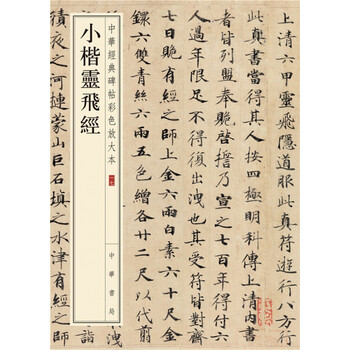 上清六甲靈飛隱道服此真符遊行八方
此真書當得其人按四極明科傳上清內書
者皆列盟奉跪啓誓乃宣之七百年得付六
過年限足不得復出洩也其受符皆對齋
七日賜有經之師上金六兩白素六十尺金
鐶六雙青絲六兩五色繒各廿二尺以代翦
中華經典碑帖彩色放大本
中華書局
小楷靈飛經
積夜之河摙蒙山巨石填之水津有經之師